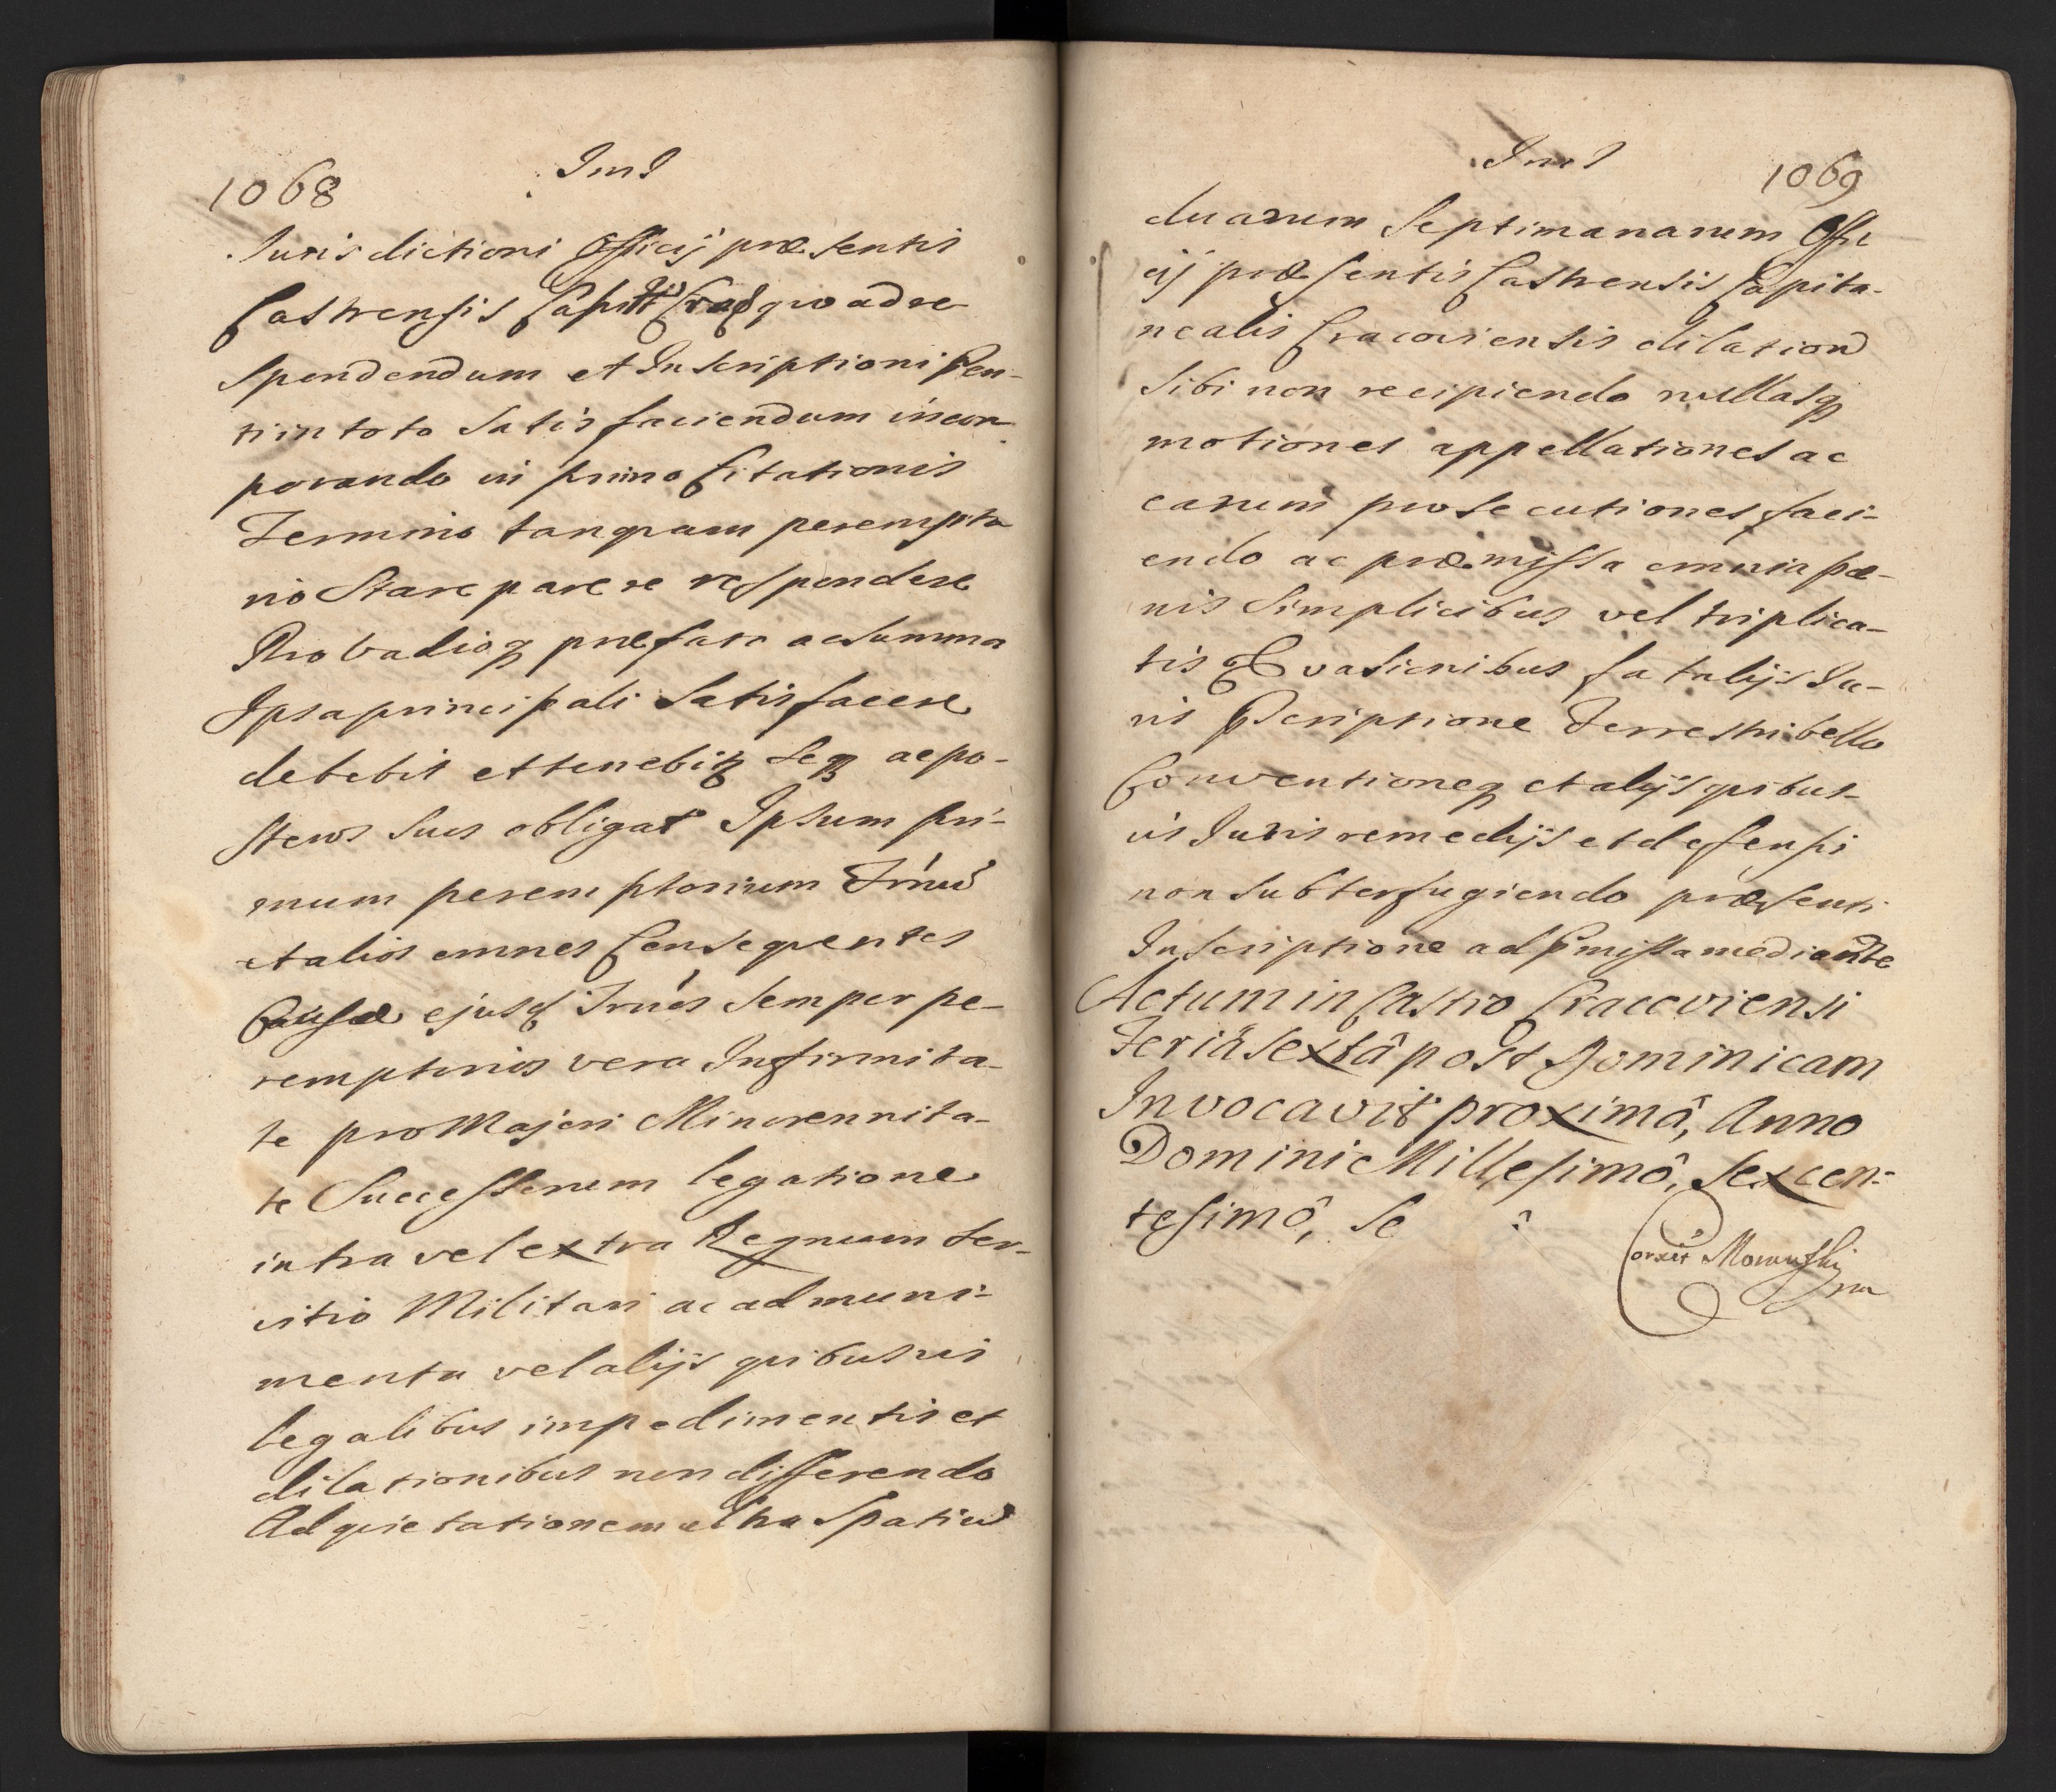 1068
Jurisdictioni Officij præsentis
Castrensis Capit quo ad re
spondendum et Inscriptioni
ri in toto satisfaciendum incor-
porando in primo Citationis
Termino tanquam perempto
rio Stare parere respondere
Pro vadioq præfato ac summa
Ipsa principali satisfacere
debebit et tenebit seq ac po-
steros suos obligat Ipsum pri-
mum peremptorium Trnũ
et alios omnes Consequentes
Causæ ejusd Trnos semper pe-
remptorios vera Infirmita-
te pro Majori Minorennita-
te Successorum legatione
intra vel extra Regnum ser-
vitio Militari ac ad muni-
menta vel alijs quibusvis
legalibus impedimentis et
dilationibus non differendo
Ad quietationem ultra Spatiũ
1069
duarum Septimanarum Offi
cij præsentis Castrensis Capita-
nealis Cracoviensis dilation
sibi non recipiendo nullasq
motiones appellationes ac
earum prosecutiones faci-
endo ac præmissa omnia pæ-
nis simplicibus vel triplica-
tis Evasionibus fatalijs Ju-
ris Pscriptione Terrestri bello
Conventioneq et alijs quibus-
vis Juris remedijs et defensi
non subterfugiendo præsenti
Inscriptione ad Pmissa mediante
Actum in Castro Cracoviensi
Feriâ sextâ post Dominicam
Invocavit proximâ, Anno
Domini Millesimô, Sexcen-
tesimô, Se